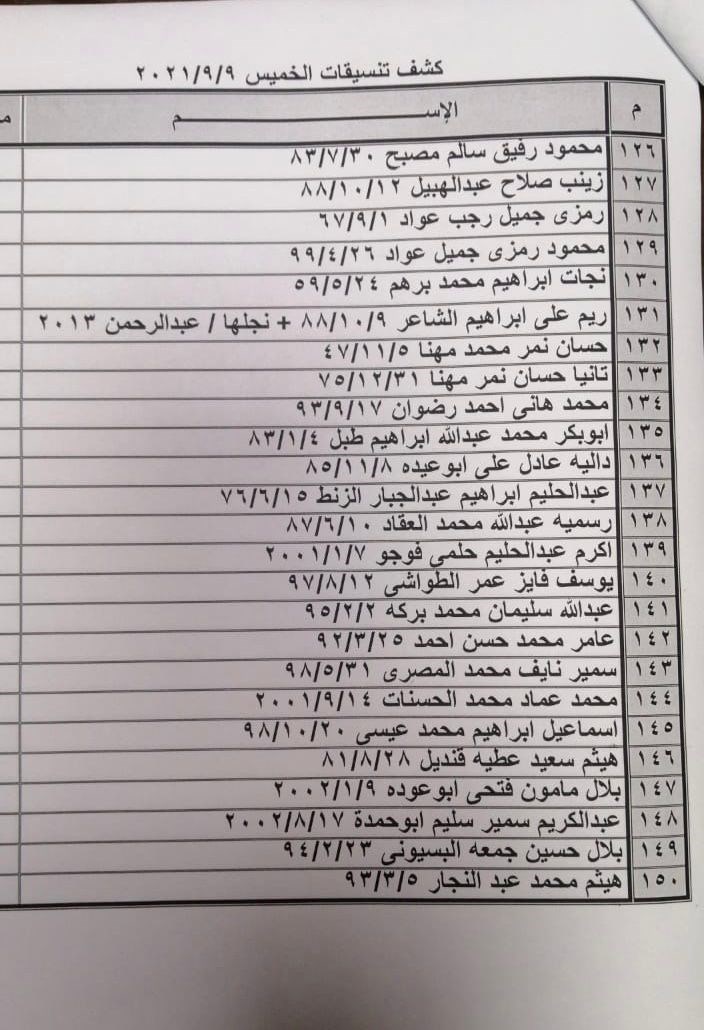 كشف تنسيقات الخميس ٢٠٢١/٩/٩
م الإســـــــــم
١٢٦ محمود رفيق سالم مصبح ٨٣/٧/٣٠
١٢٧ زينب صلاح عبدالهبيل ٨٨/١٠/١٢
١٢٨ رمزى جميل رجب عواد ٦٧/٩/١
١٢٩ محمود رمزى جميل عواد ٩٩/٤/٢٦
١٣٠ نجات ابراهيم محمد برهم ٥٩/٥/٢٤
١٣١ ريم على ابراهيم الشاعر ٨٨/١٠/٩ + نجلها / عبدالرحمن ٢٠١٣
١٣٢ حسان نمر محمد مهنا ٤٧/١١/٥
١٣٣ تانيا حسان نمر مهنا ٧٥/١٢/٣١
١٣٤ محمد هانى احمد رضوان ٩٣/٩/١٧
١٣٥ ابوبكر محمد عبدالله ابراهيم طبل ٨٣/١/٤
١٣٦ داليه عادل على ابوعيده ٨٥/١١/٨
١٣٧ عبدالحليم ابراهيم عبدالجبار الزنط ٧٦/٦/١٥
١٣٨ رسميه عبدالله محمد العقاد ٨٧/٦/١٠
١٣٩ اكرم عبدالحليم حلمى فوجو ٢٠٠١/١/٧
١٤٠ يوسف فايز عمر الطواشى ٩٧/٨/١٢
١٤١ عبدالله سليمان محمد بركه ٩٥/٢/٢
١٤٢ عامر محمد حسن احمد ٩٢/٣/٢٥
١٤٣ سمير نايف محمد المصرى ٩٨/٥/٣١
١٤٤ محمد عماد محمد الحسنات ٢٠٠١/٩/١٤
١٤٥ اسماعيل ابراهيم محمد عيسى ٩٨/١٠/٢٠
١٤٦ هيثم سعيد عطيه قنديل ٨١/٨/٢٨
١٤٧ بلال مامون فتحى ابوعوده ٢٠٠٢/١/٩
١٤٨ عبدالكريم سمير سليم ابوحمدة ٢٠٠٢/٨/١٧
١٤٩ بلال حسين جمعه البسيونى ٩٤/٢/٢٣
١٥٠ هيثم محمد عبد النجار ٩٣/٣/٥